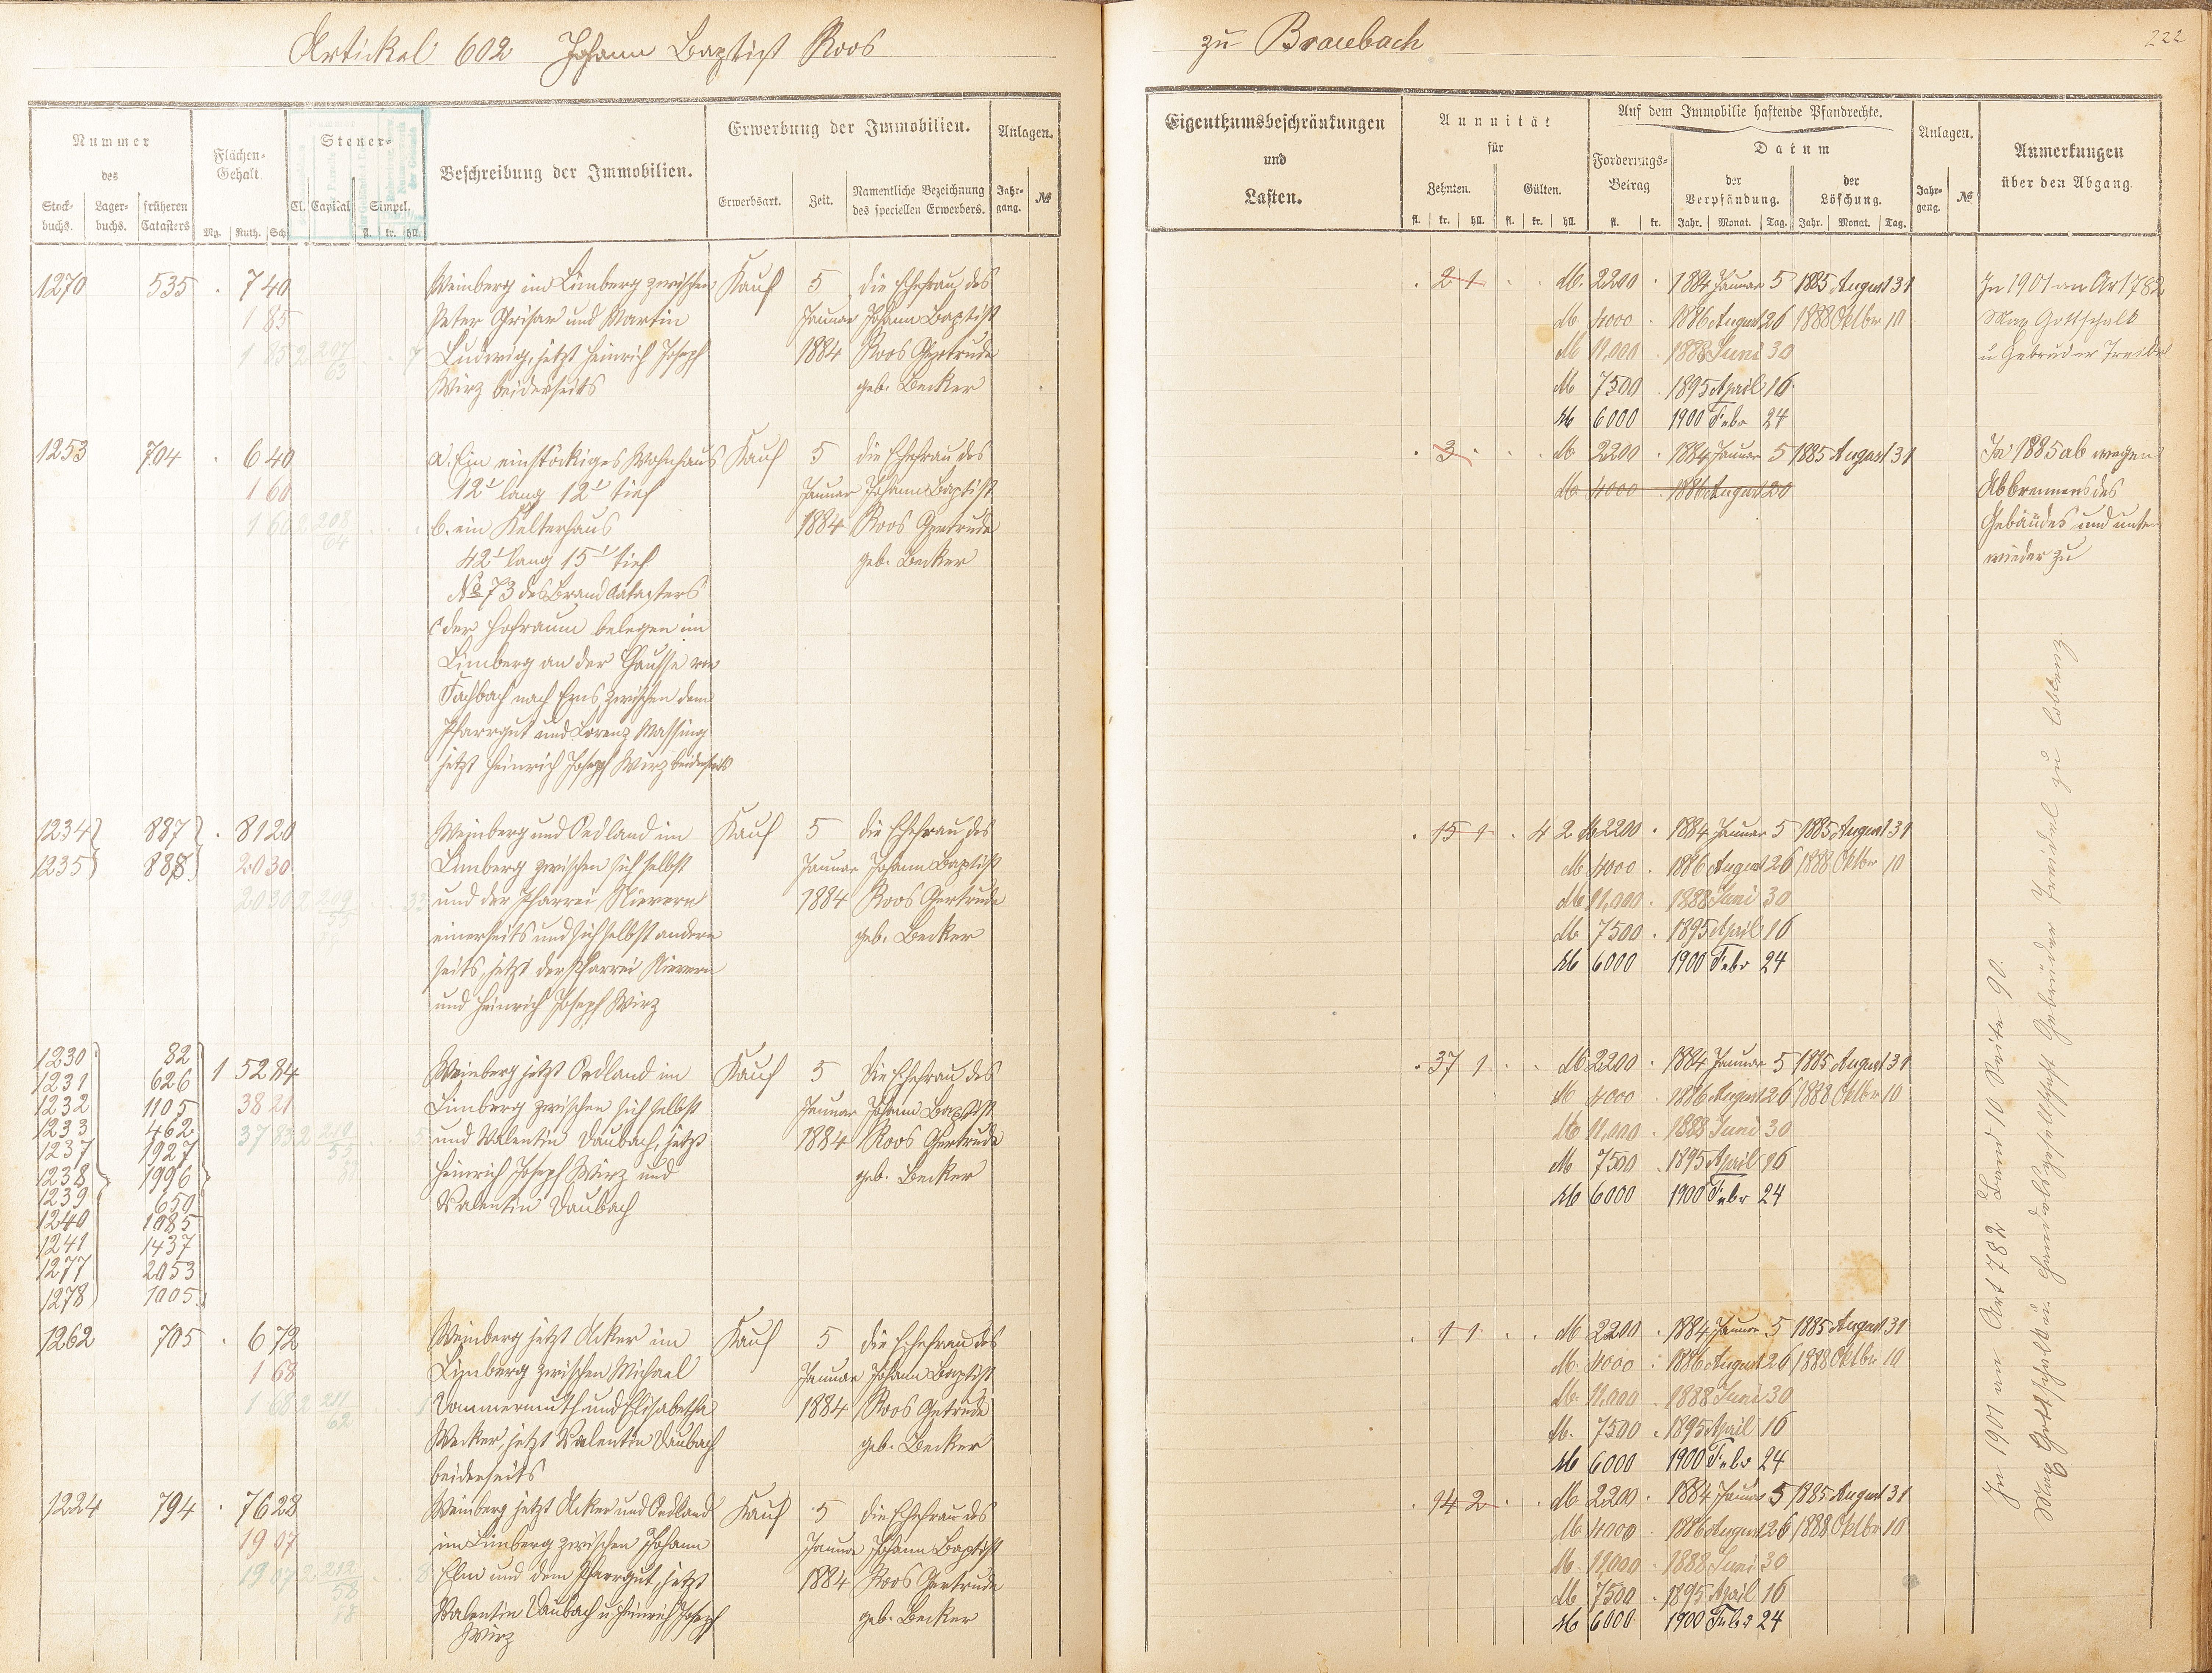 Artickel 602 Johann Baptist Roos
Nummer
des
Stock-
buchs.
Lager-
buchs.
früheren
Catasters
Flächen-
Gehalt.
Mg. Ruth. Sch.
Steuer-
Cl. Capital Simpel.
fl. kr. hll.
Beschreibung der Immobilien.
Erwerbung der Immobilien.
Erwerbsart.
Zeit.
Namentliche Bezeichnung
des speciellen Erwerbers.
Anlagen.
Jahr-
gang.
№
1270 535 . 7 40
1 85
1 85 2 207
63
7
Weinberg im Limberg zwischen
Peter Grisar und Martin
Ludwig, jetzt Heinrich Joseph
Wirz beiderseits
Kauf
5
Januar
1884
die Ehefrau des
Johann Baptist
Roos Gertrude
geb. Becker
1253 704 . 6 40
1 60
1 60 2 208
64
a. Ein einstöckiges Wohnhaus
12' lang 12' tief
b. ein Kelterhaus
42' lang 15' tief
№ 73 des Brand Catasters
c der Hofraum belegen im
Limberg an der Chaussee von
Fachbach nach Ems zwischen dem
Pfarrgut und Lorenz Massing
jetzt Heinrich Joseph Wirz beiderseits
Kauf
5
Januar
1884
die Ehefrau des
Johann Baptist
Roos Gertrude
geb. Becker
1234 887 . 81 20
1235 888 20 30
20 30 2 209
33
Weinberg und Oedland im
Limberg zwischen sich selbst
und der Pfarrei Nievern
einerseits und sich selbst andern
seits, jetzt der Pfarrei Nievern
und Heinrich Joseph Wirz
Kauf
5
Januar
1884
die Ehefrau des
Johann Baptist
Roos Gertrude
geb. Becker
1230 82
1231 626 1 52 84
1232 1105 38 21
1233 462
1237 1927 37 83 2 210
1238 1996
1239 650
1240 1085
1241 1437
1277 2053
1278 1005
Weinberg jetzt Oedland im
Limberg zwischen sich selbst
und Valentin Daubach, jetzt
Heinrich Joseph Wirz und
Valentin Daubach
Kauf
5
Januar
1884
die Ehefrau des
Johann Baptist
Roos Gertrude
geb. Becker
1262 705 . 6 72
1 68
1 68 2 211
62
Weinberg jetzt Acker im
Limberg zwischen Michael
Dommermuth und Elisabetha
Wecker, jetzt Valentin Daubach
beiderseits
Kauf
5
Januar
1884
die Ehefrau des
Johann Baptist
Roos Getrude
geb. Becker
1224 794 . 76 28
19 07
19 07 2 212
58
8
Weinberg jetzt Acker und Oedland
im Limberg zwischen Johann
Elm und dem Pfarrgut, jetzt
Valentin Daubach u. Heinrich Joseph
Wirz
Kauf
5
Januar
1884
die Ehefrau des
Johann Baptist
Roos Gertrude
geb. Becker
zu Braubach
222
Eigenthumsbeschränkungen
und
Lasten.
Annuität
für
Zehnten.
Gülten.
fl. kr. hll. fl. kr. hll.
Auf dem Immobilie haftende Pfandrechte.
Forderungs-
Betrag
fl. kr.
Datum
der
Verpfändung.
der
Löschung.
Jahr. Monat. Tag. Jahr. Monat. Tag.
Anlagen.
Jahr-
gang.
№
Anmerkungen
über den Abgang.
. 2 1 . . M. 2200 . 1884 Januar 5 1885 August 31
M 4000 . 1886 August 26 1888 Oktbr 10
M 11,000 . 1888 Juni 30
M 7500 . 1895 April 16
M 6000 1900 Febr 24
In 1901 an Art 782
Max Gottschalk
u Gebrüder Treidel
. 3 . . . M 2200 . 1884 Januar 5 1885 August 31
M 4000 . 1886 August 20
In 1885 ab wegen
Abbrennens des
Gebäudes und unten
wieder zu
. 15 1 . 4 2 M 2200 . 1884 Januar 5 1885 August 31
M 4000 . 1886 August 26 1888 Oktbr 10
M 11,000 . 1888 Juni 30
M 7500 . 1895 April 16
M 6000 1900 Febr 24
. 37 1 . . M 2200 . 1884 Januar 5 1885 August 31
M 4000 . 1886 August 26 1888 Oktbr 10
M 11,000 . 1888 Juni 30
M 7500 . 1895 April 16
M 6000 1900 Febr 24
. 1 1 . . M 2200 . 1884 Januar 5 1885 August 31
M. 4000 . 1886 August 26 1888 Oktbr 10
M. 11,000 . 1888 Juni 30
M. 7500 . 1895 April 16
M 6000 1900 Febr 24
. 14 2 . . M 2200 . 1884 Januar 5 1885 August 31
M 4000 . 1886 August 26 1888 Oktbr 10
M. 11,000 . 1888 Juni 30
M 7500 . 1895 April 16
M 6000 1900 Febr 24
In 1901 an Art 782 Band 10 Seite 90.
Max Gottschalk u. Handelsgesellschaft Gebrüder Treidel zu Coblenz